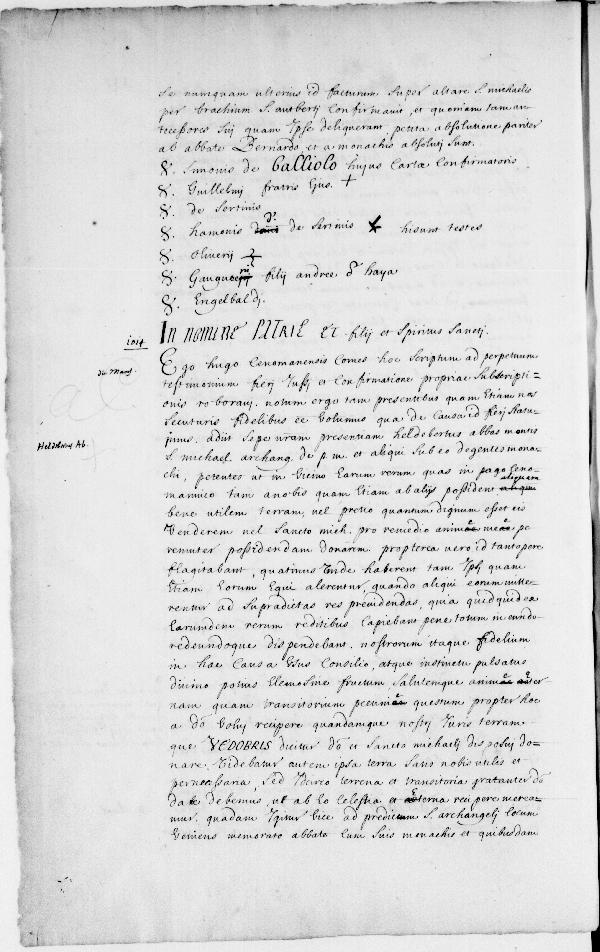 se numquam ulterius id facturum super altare S. michaelis
per brachium S. autberti confirmavit, et quoniam tam an
tecessores sui quam Ipse deliquerant, petita absolutione pariter
ab abbate Bernardo et a monachis absoluti sunt.
S. simonis de Galliolo hujus Cartæ Confirmatoris
S. Guillelmj fratris Ejus. +
S. de Sertinis
S. hamonis de Sertinis hi sunt testes
S. oliverij
S. filij andree d haya
S. Engelbaldj.
1014 In nomine PATRIE ET filij et Spiritus Sanctj.
du Mans. Ego hugo Cenomanensis Comes hoc Scriptum ad perpetuum
testimonium fierj Jussj et Confirmatione propriae Subscripti=
onis roboravj. notum ergo tam presentibus quam Etiam nos
Secuturis fidelibus Volumus qua de Causa id fierj Statu=
imus. adiit Sepe nram presentiam heldebertus abbas montis
Heldebertus Ab. S. michael. archang. de p. m. et aliqui Sub eo degentes mona
chi, petentes ut in Vicino Earum rerum quas in pago Ceno=
mannico tam a nobis quam Etiam ab alijs possident aliquam
bene utilem terram, vel pretio quantum dignum esset eis
Venderem vel Sancto mich. pro remedio animæ meæ, pe
renniter possidendam donarem. propterea vero id tantopere
flagitabant, quatinus Vnde haberent tam Ipsj quam
Etiam Eorum Equi alerentur, quando aliqui eorum mitte=
rentur ad Supradictas res previdendas, quia quidquid ea
Earumdem rerum reditibus Capiebant pene totum in eundo
redeundoque dispendebant. nostrorum itaque fidelium
in hac Causa Usus Consilio, atque instinctu pulsatus
divino potius Elemosine fructum, Salutemque animæ æter
nam quam transitorium pecuniæ questum propter hoc
a dō Volui recipere quandamque nostrj Juris terram
que VEDOBRIS dicitur dō et Sancto michaelj disposuj do=
nare. Videbatur autem ipsa terra Satis nobis utilis et
pernecessaria, Sed Idcirco terrena et transitoria gratanter dō
dare debemus, ut ab Eo Celestia et æterna recipere merea=
mur. quadam Igitur Vice ad predictum S. archangelj Locum
Veniens memorato abbate Cum Suis monachis et quibusdam